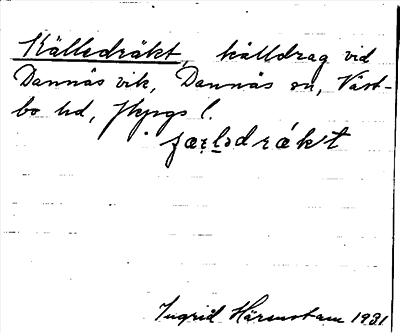 Källedräkt, källdrag vid
Dannäs vik, Dannäs sn, Väst-
bo hd, Jkpgs l.
ɟæḷədrákt
Ingrid Härenstam 1931